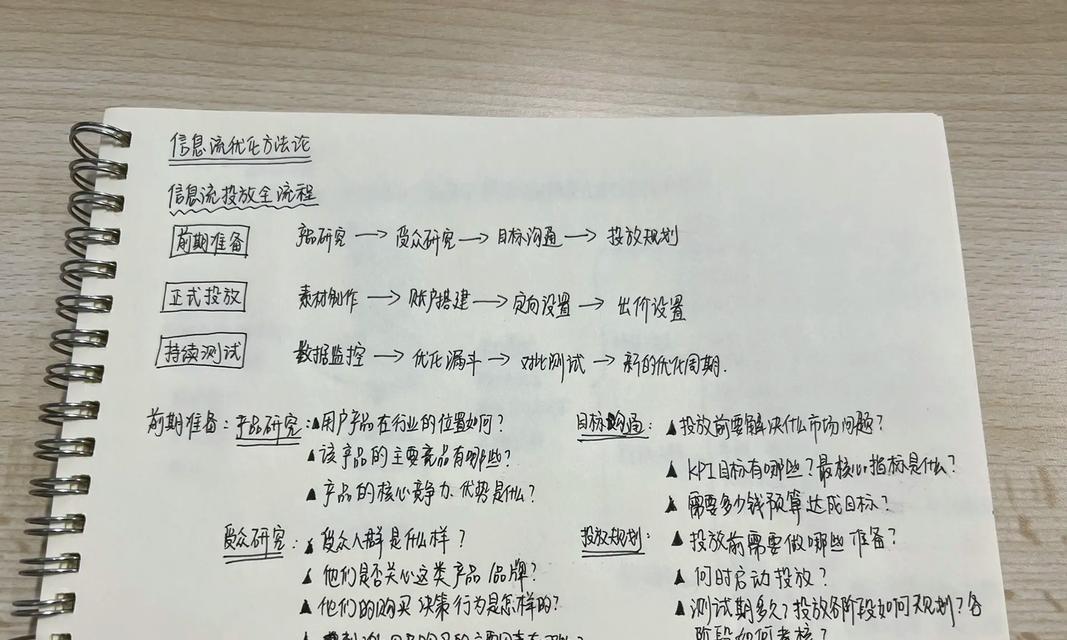 信息流优化方法论
信息流投放全流程
前期准备 产品研究 → 受众研究 → 目标沟通 → 投放规划
正式投放 素材创作 → 账户搭建 → 定向设置 → 出价设置
持续测试 数据监控 → 优化漏斗 → 对比测试 → 新的优化周期.
前期准备: 产品研究: ▲用户产品在行业的位置如何?
▲该产品的主要竞品有哪些?
▲产品的核心竞争力、优势是什么?
受众研究: ▲受众人群是什么样?
▲他们是否关心这类产品/品牌?
▲他们的购买决策行为是怎样的?
目标沟通: ▲投放前要解决什么市场问题?
▲KPI目标有哪些?最核心指标是什么?
▲需要多少钱预算达成目标?
投放规划: ▲投放前需要做哪些准备?
▲何时启动投放?
▲测试期多久?投放各阶段如何规划?各
阶段如何考核?